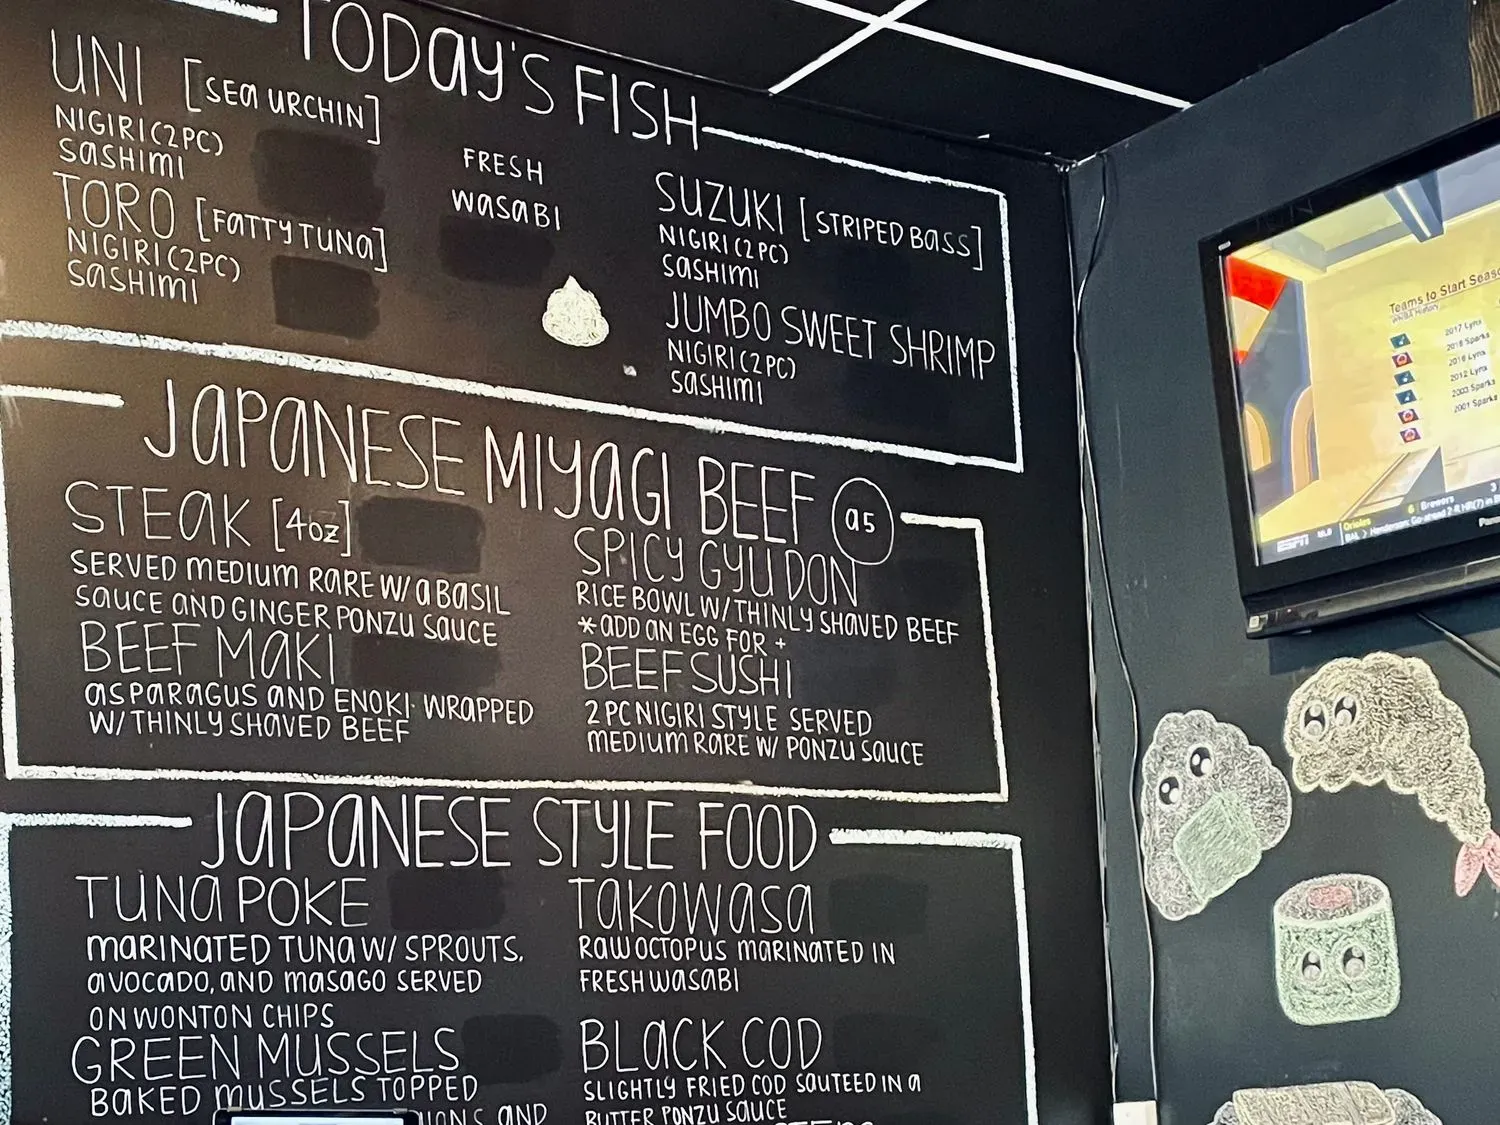 TODAY'S FISH
UNI [SEA URCHIN]
NIGIRI (2PC)
SASHIMI
TORO [FATTY TUNA]
NIGIRI (2PC)
SASHIMI
FRESH
WASABI
SUZUKI [STRIPED BASS]
NIGIRI (2PC)
SASHIMI
JUMBO SWEET SHRIMP
NIGIRI (2PC)
SASHIMI
JAPANESE MIYAGI BEEF A5
STEAK [4oz]
SERVED MEDIUM RARE W/ A BASIL
SAUCE AND GINGER PONZU SAUCE
BEEF MAKI
ASPARAGUS AND ENOKI WRAPPED
W/ THINLY SHAVED BEEF
SPICY GYU DON
RICE BOWL W/ THINLY SHAVED BEEF
*ADD AN EGG FOR +
BEEF SUSHI
2PC NIGIRI STYLE SERVED
MEDIUM RARE W/ PONZU SAUCE
JAPANESE STYLE FOOD
TUNA POKE
MARINATED TUNA W/ SPROUTS,
AVOCADO, AND MASAGO SERVED
ON WONTON CHIPS
GREEN MUSSELS
BAKED MUSSELS TOPPED
AND
TAKOWASA
RAW OCTOPUS MARINATED IN
FRESH WASABI
BLACK COD
SLIGHTLY FRIED COD SAUTEED IN A
BUTTER PONZU SAUCE
Teams to Start Seas
WNBA History
2017 Lynx
2016 Sparks
2016 Lynx
2012 Lynx
2003 Sparks
2001 Sparks
ESPN
MLB
Orioles 6
Brewers 3
BAL > Henderson: Go-ahead 2-R HR(7) in